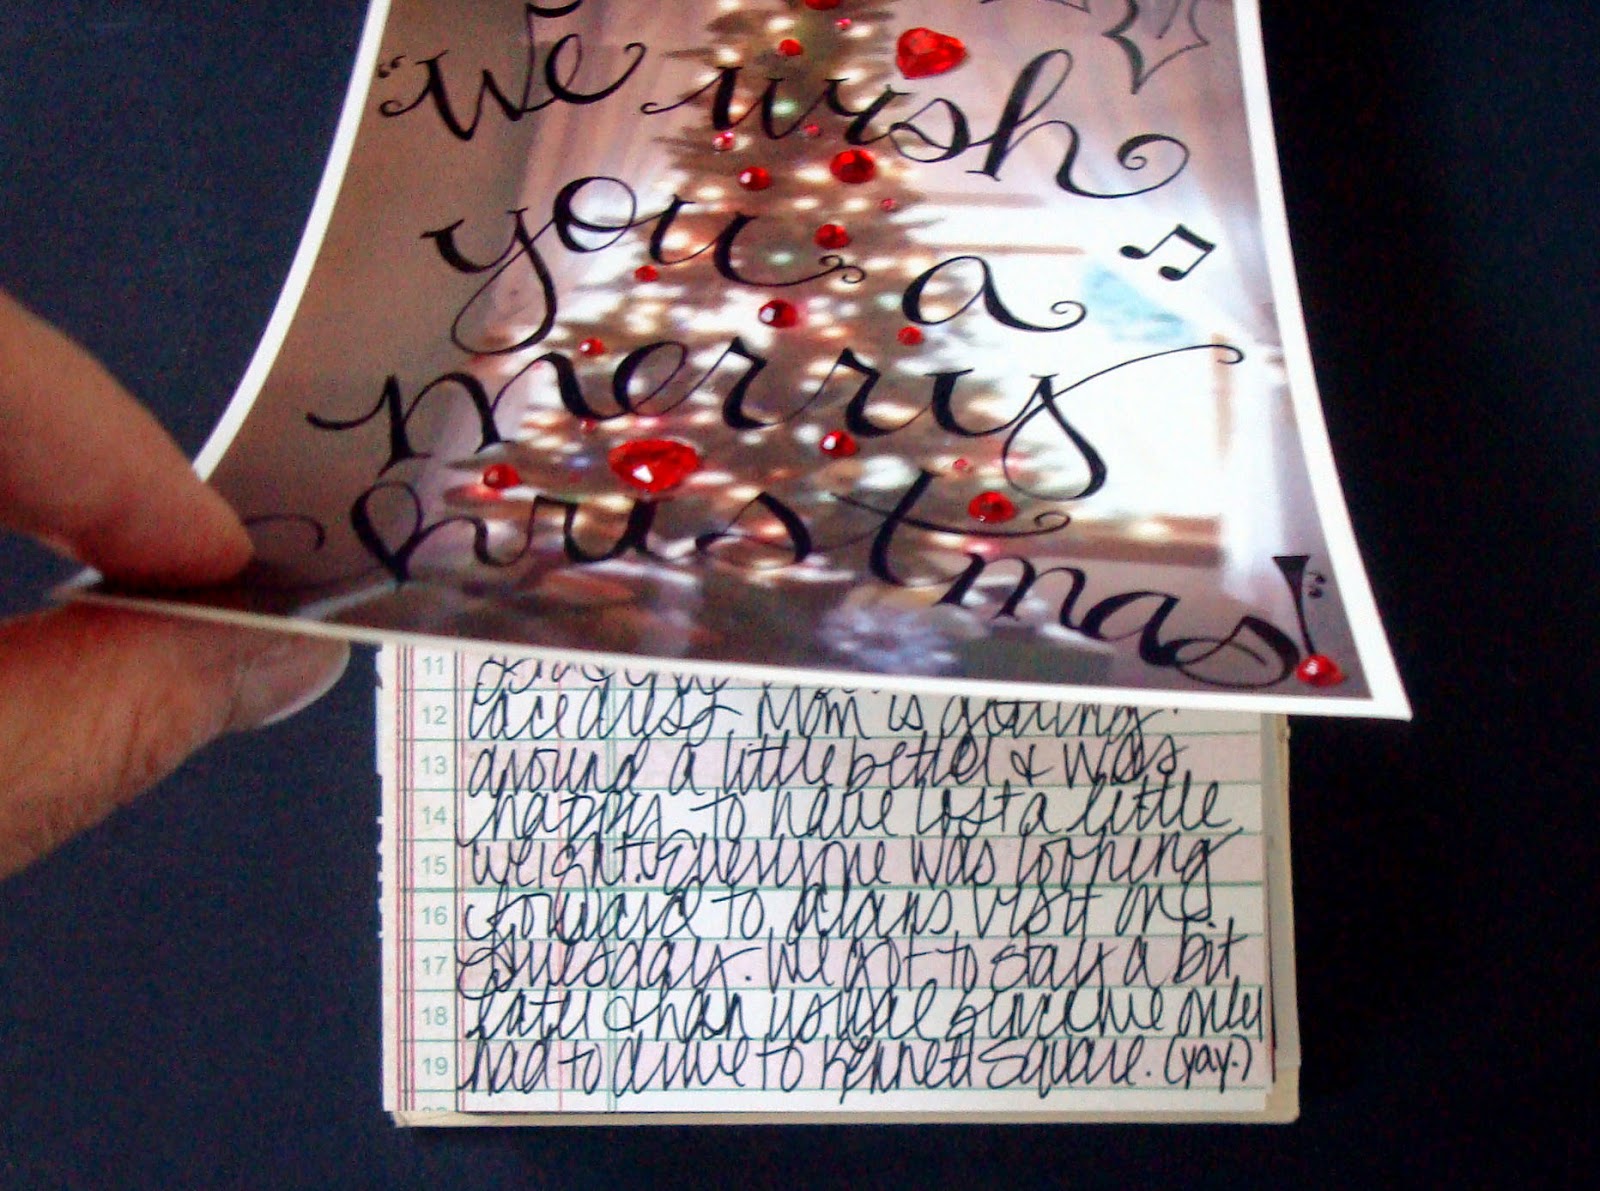 "We wish
you a
merry
Christmas!"
11
12 lace dress & Mom is getting
13 around a little better & was
14 happy to have lost a little
15 weight. Everyone was looning
16 forward to visit on
17 Tuesday. We got to stay a bit
18 later than usual since we only
19 had to drive to Kennett Square. (yay.)